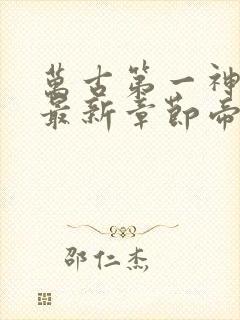 萬古第一神
最新章節帝
邵仁杰